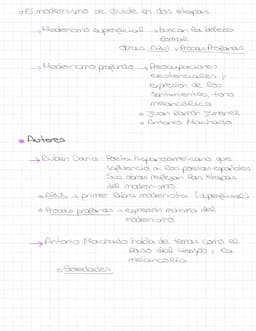 • El modernismo se divide en dos etapas
→ Modernismo superficial → buscan la belleza
formal
obras: Azul y Prosas Profanas
→ Modernismo profundo → Preocupaciones
existenciales y
expresión de los
sentimientos, tono
melancólico
• Juan Ramón Jiménez
• Antonio Machado
• Autores
→ Rubén Darío: Poeta hispanoamericano que
influenció a los poetas españoles
Sus obras reflejan las etapas
del modernismo
• Azul → primer libro modernista (superficial)
• Prosas profanas → expresión máxima del
modernismo
→ Antonio Machado habla de temas como el
paso del tiempo y la
melancolía.
• Soledades